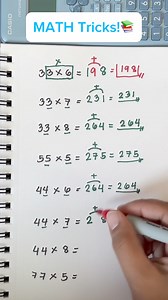 MATH Tricks!📚
33 × 6 = 198 = 198
33 × 7 = 231 = 231
33 × 8 = 264 = 264
55 × 5 = 275 = 275
44 × 6 = 264 = 264
44 × 7 = 2 8
44 × 8 =
77 × 5 =